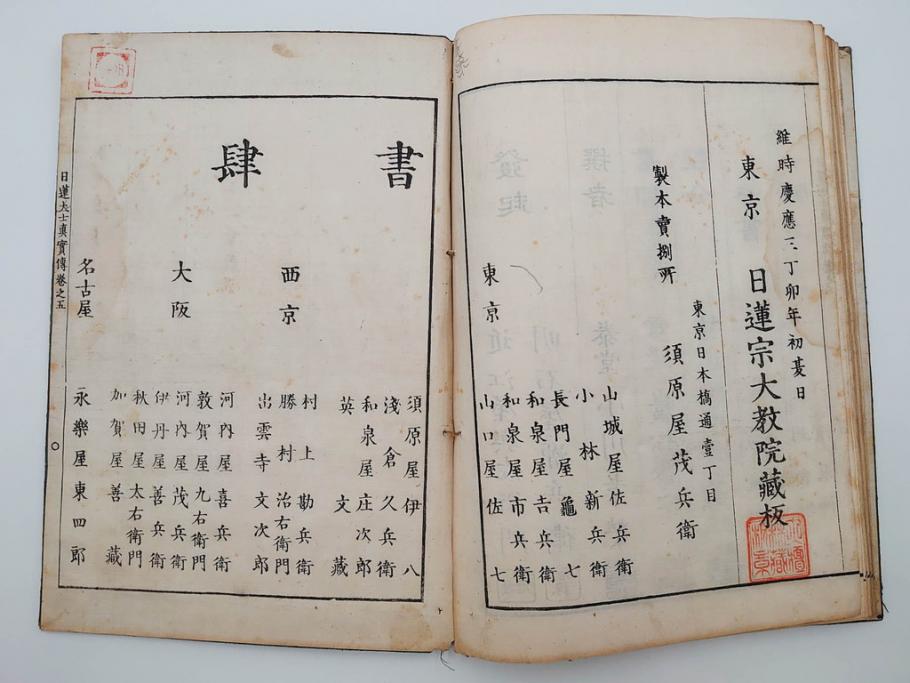 維時慶應三丁卯年初夏日
東京 日蓮宗大教院藏板
東京日本橋通壹丁目
須原屋茂兵衛
製本賣捌所
東京
山城屋佐兵衛
小林新兵衛
長門屋龜七
和泉屋吉兵衛
和泉屋市兵衛
山口屋佐七
書肆
須原屋伊八
淺倉久兵衛
和泉屋庄次郎
英文藏
西京
村上勘兵衛
勝村治右衛門
出雲寺文次郎
大阪
河内屋喜兵衛
敦賀屋九右衛門
河内屋茂兵衛
伊丹屋善兵衛
秋田屋太右衛門
加賀屋善藏
名古屋
永樂屋東四郎
日蓮大士真實傳卷之五